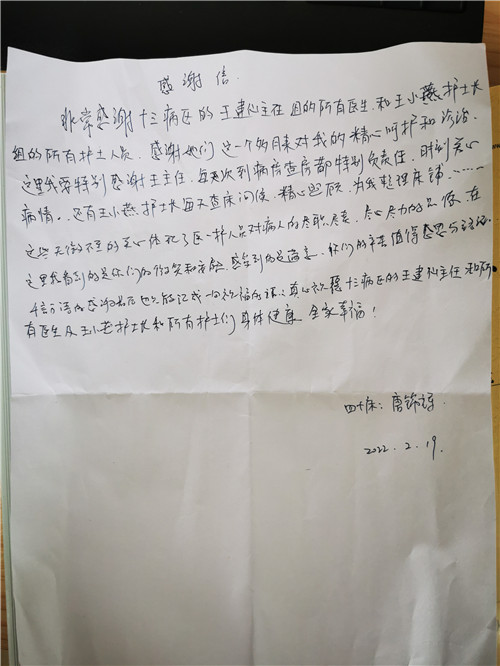 感谢信
非常感谢十三病区的王建仙主任组的所有医生和王小燕护士长
组的所有护士人员，感谢她们这一个多月来对我的精心呵护和治治，
这里我要特别感谢王主任，每次到病房查房都特别负责任，时刻关心
病情。还有王小燕护士长每天查床问候，精心照顾，为我整理床铺……
这些无微不至的关心体现了医护人员对病人的尽职尽责，尽心尽力的在
这里我看到的是你们的微笑和感受到的是你们的值得感恩与
千言万语的感谢最后也化成一句祝福的话：真心祝愿十三病区的王建仙主任和所
有医生及王小燕护士长和所有护士们身体健康 全家幸福！
四十床：唐
2022.2.19.